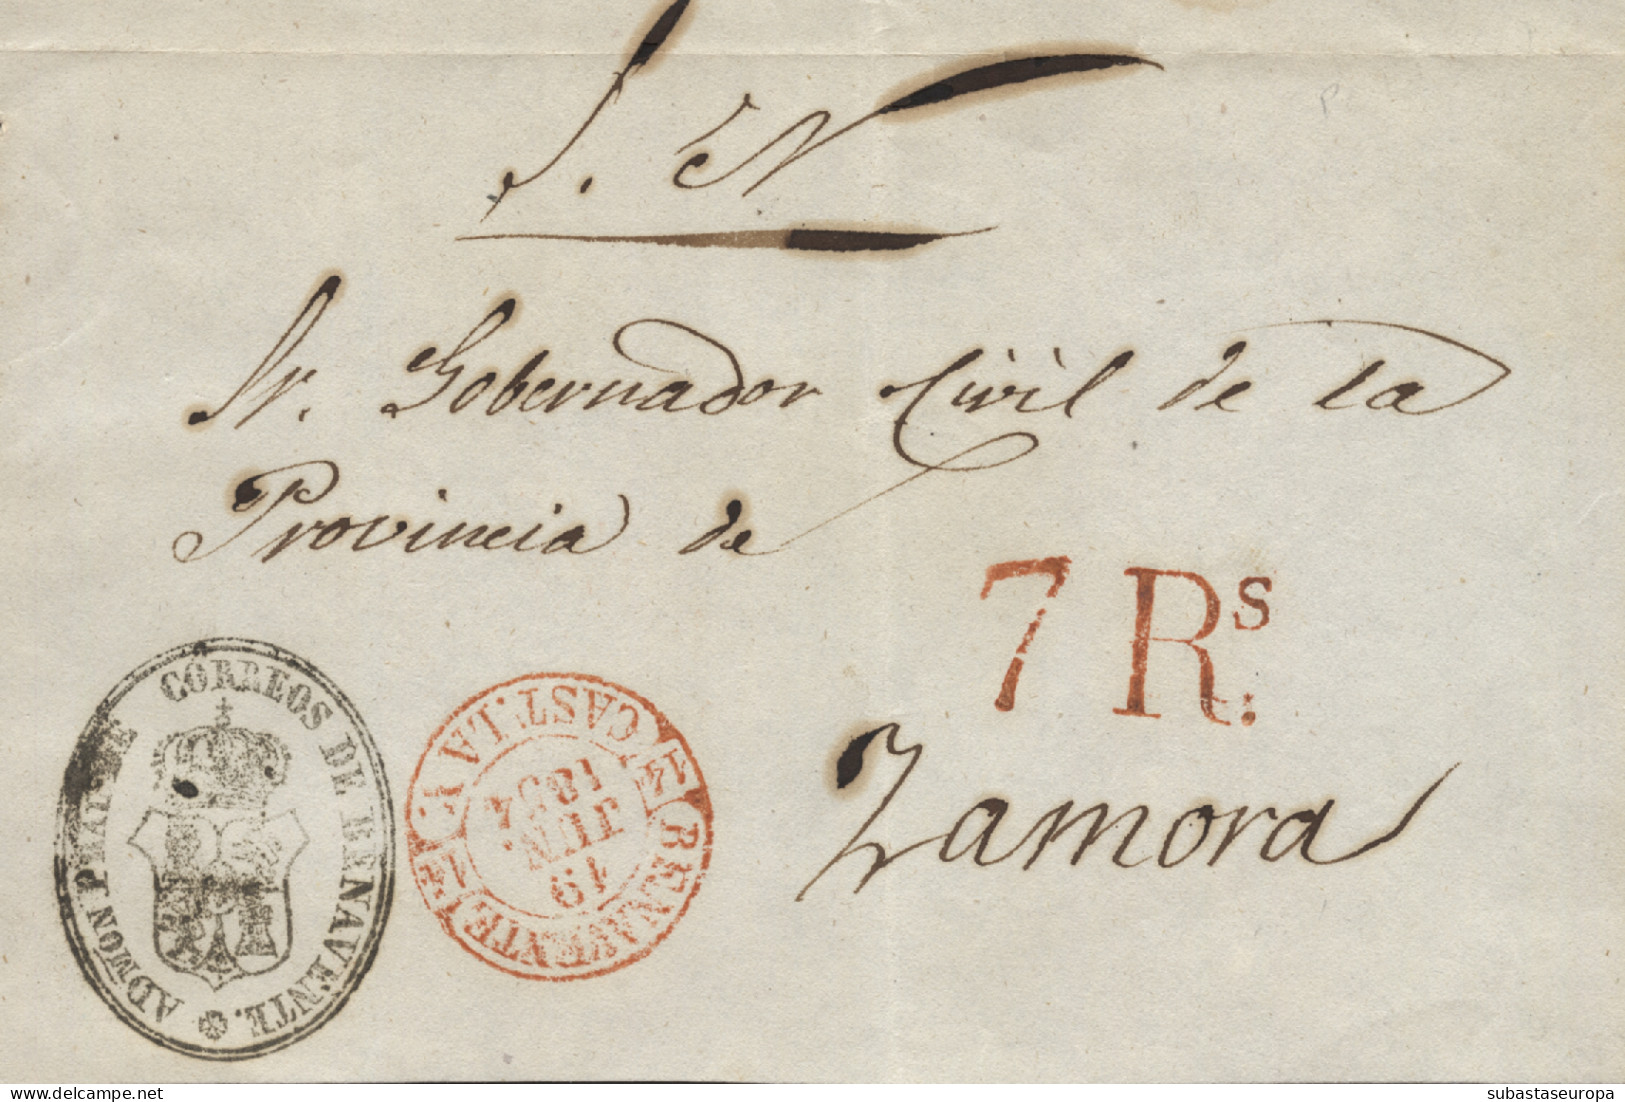 S. N
Sr. Gobernador Civil de la
Provincia de
7 Rs.
Zamora
ADMON PRAL DE CORREOS DE BENAVENTE.
BENAVENTE
CAST. LA V.
19
JUN.
1854
delcampe.net
subastaseuropa